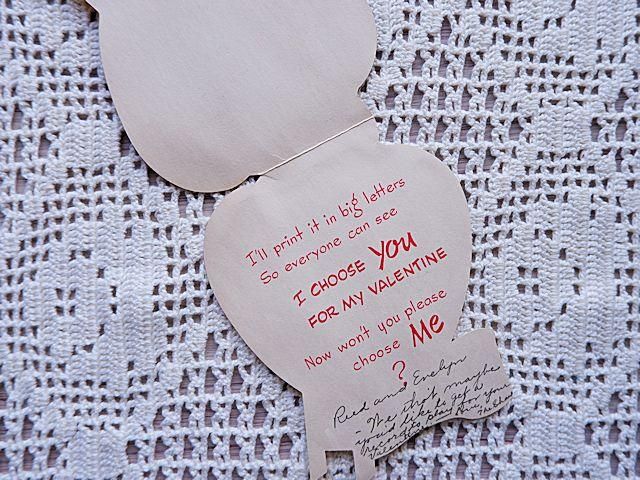 I'll print it in big letters
So everyone can see
I CHOOSE YOU
FOR MY VALENTINE
Now won't you please
choose Me
?
Reed and Evelyn
that maybe
you'd like to get a
record to play on your